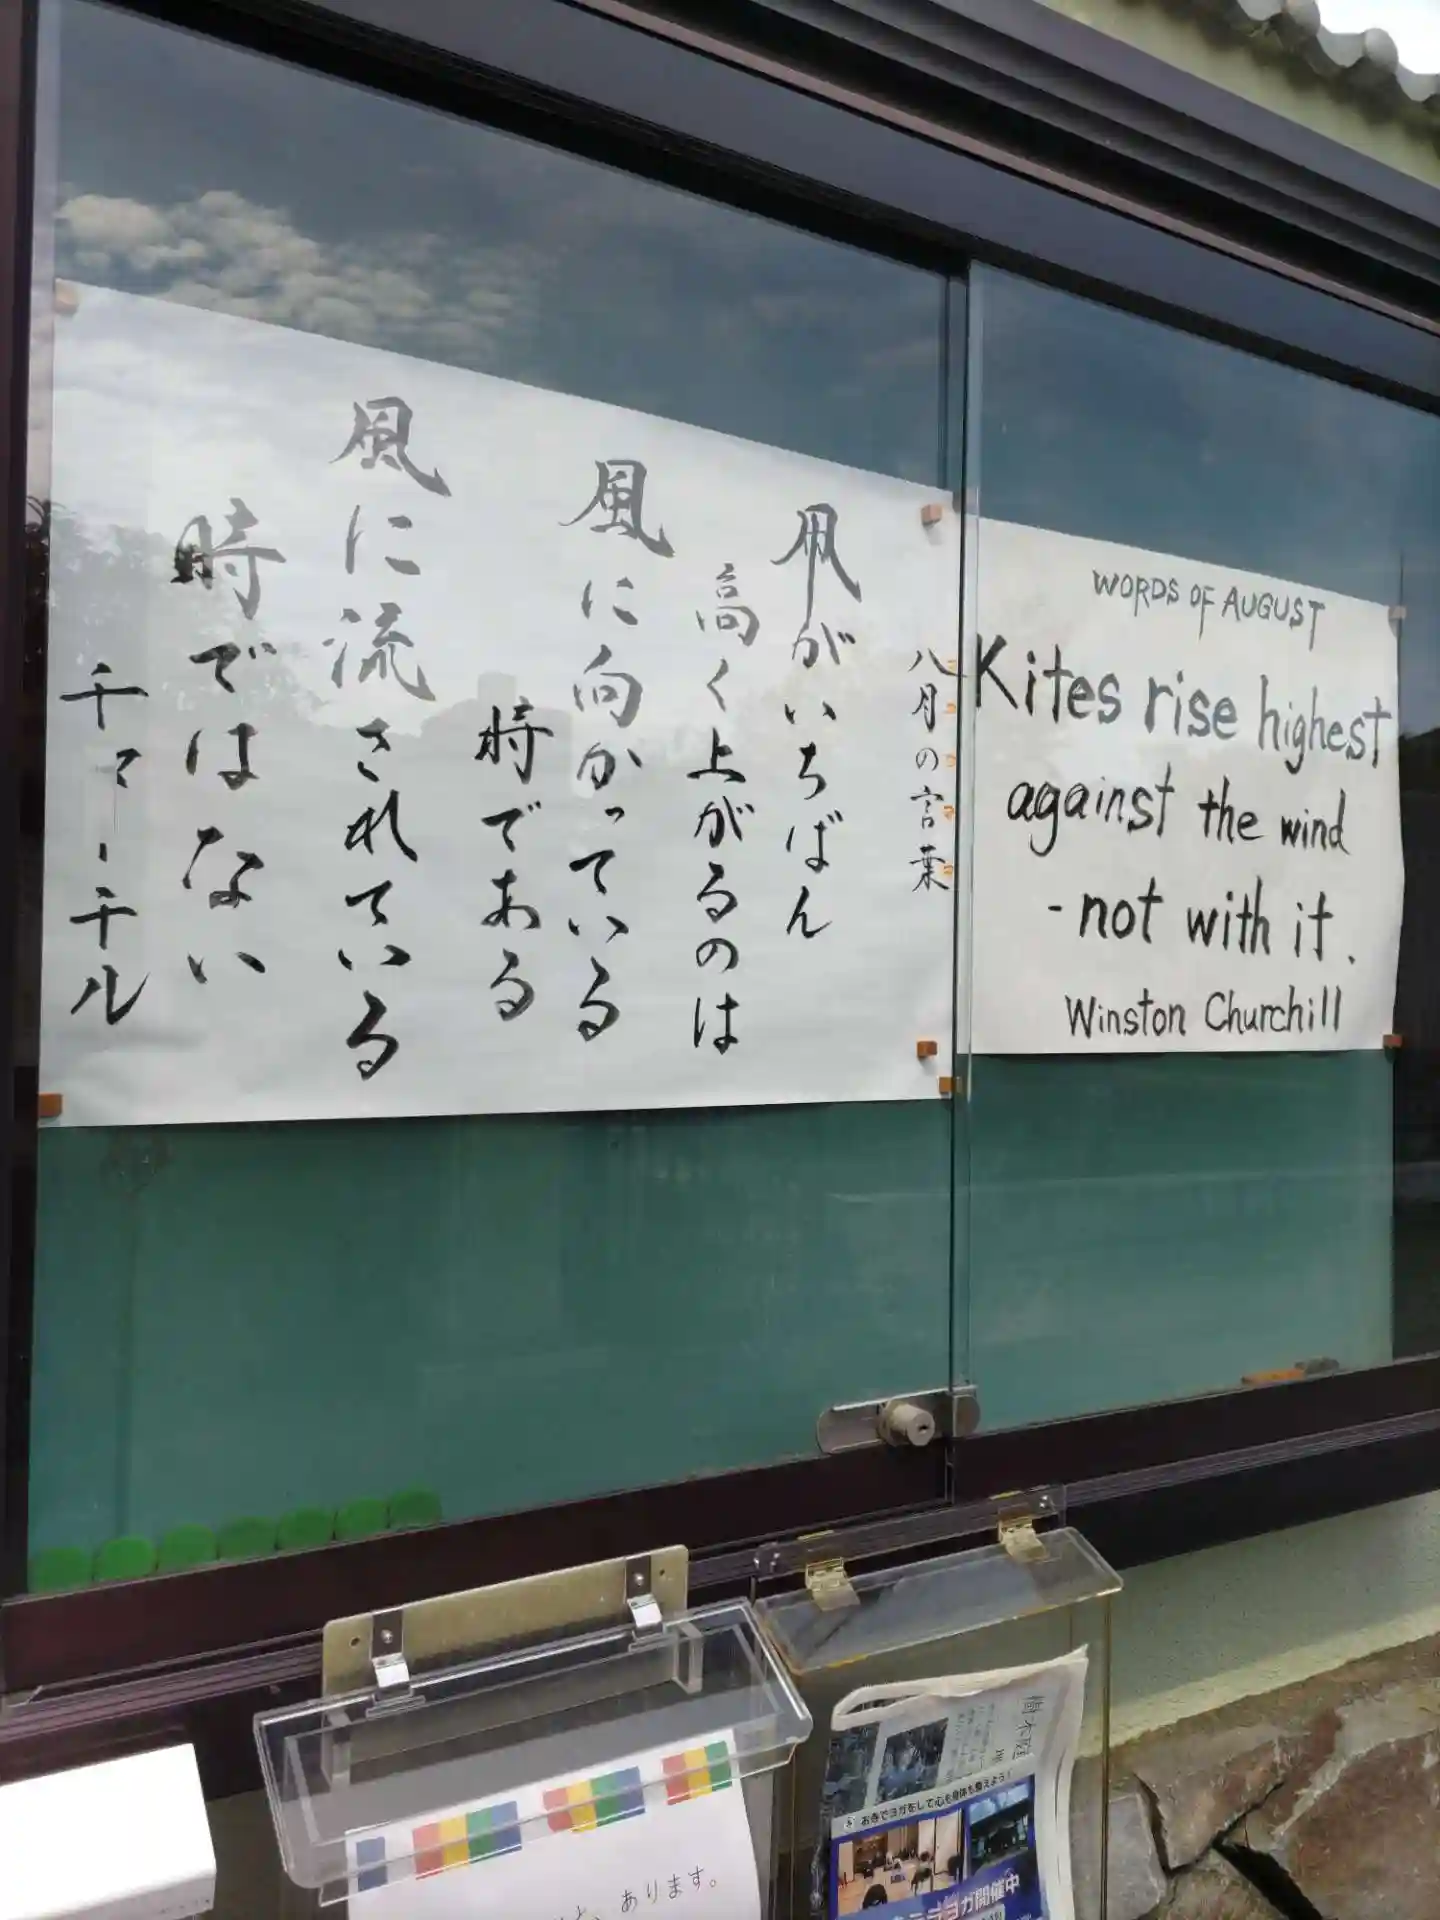 八月の言葉
凧がいちばん
高く上がるのは
風に向かっている
時である
風に流されている
時ではない
チャーチル
WORDS OF AUGUST
Kites rise highest
against the wind
-not with it.
Winston Churchill
あります。
お寺でヨガをして心も身体も整えよう!
ヨガ開催中